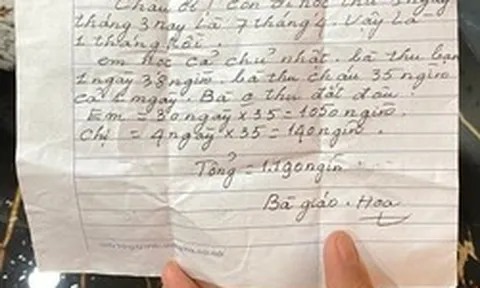 Cháu ơi! Con đi học từ 3 ngày
tháng 3 nay là 7 tháng 4. Vậy là
1 tháng rồi.
em học cả chủ nhật. bà thu bạn
1 ngày 38 ngìn. bà thu cháu 35 ngìn
cả 2 ngày. Bà o thu đắt đâu.
Em = 30 ngày x 35 = 1050 ngìn.
Chị = 4 ngày x 35 = 140 ngìn.
Tổng = 1.190 ngìn.
Bà giáo. Hoa